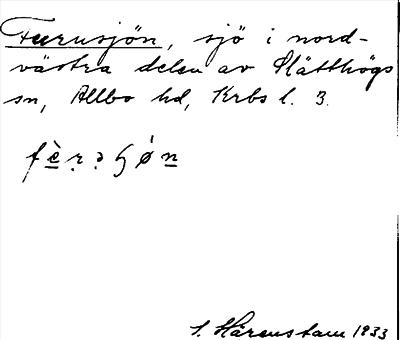 Furusjön, sjö i nord-
västra delen av Slätthögs
sn, Allbo hd, Krbs l. 3.
S. Härenstam 1933